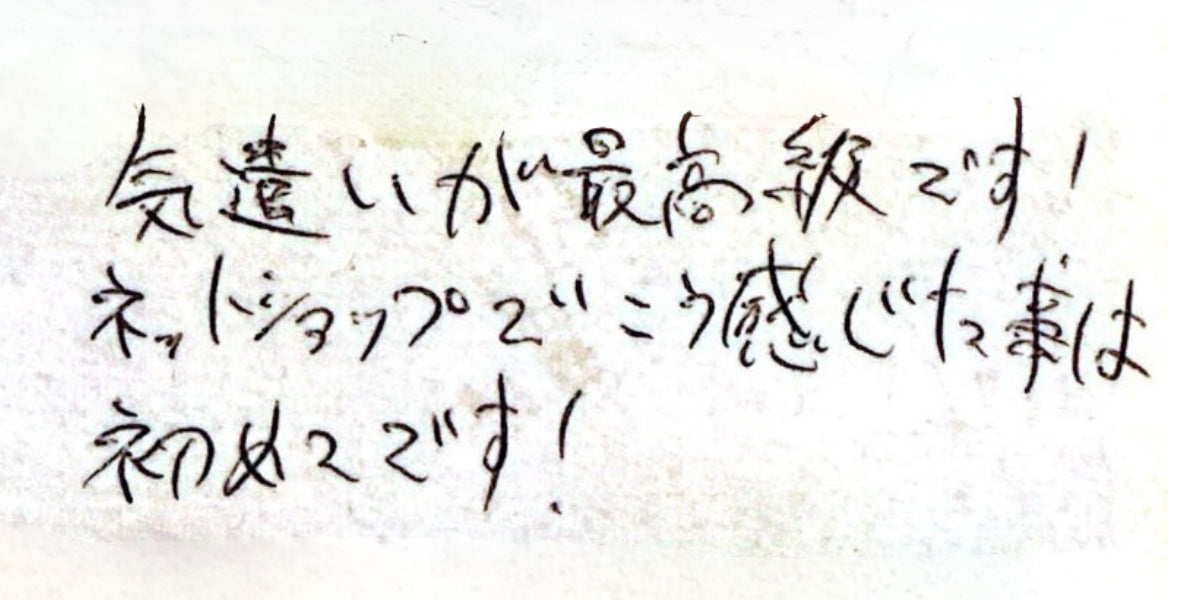 気遣いが最高級です!
ネットショップでこう感じた事は
初めてです!